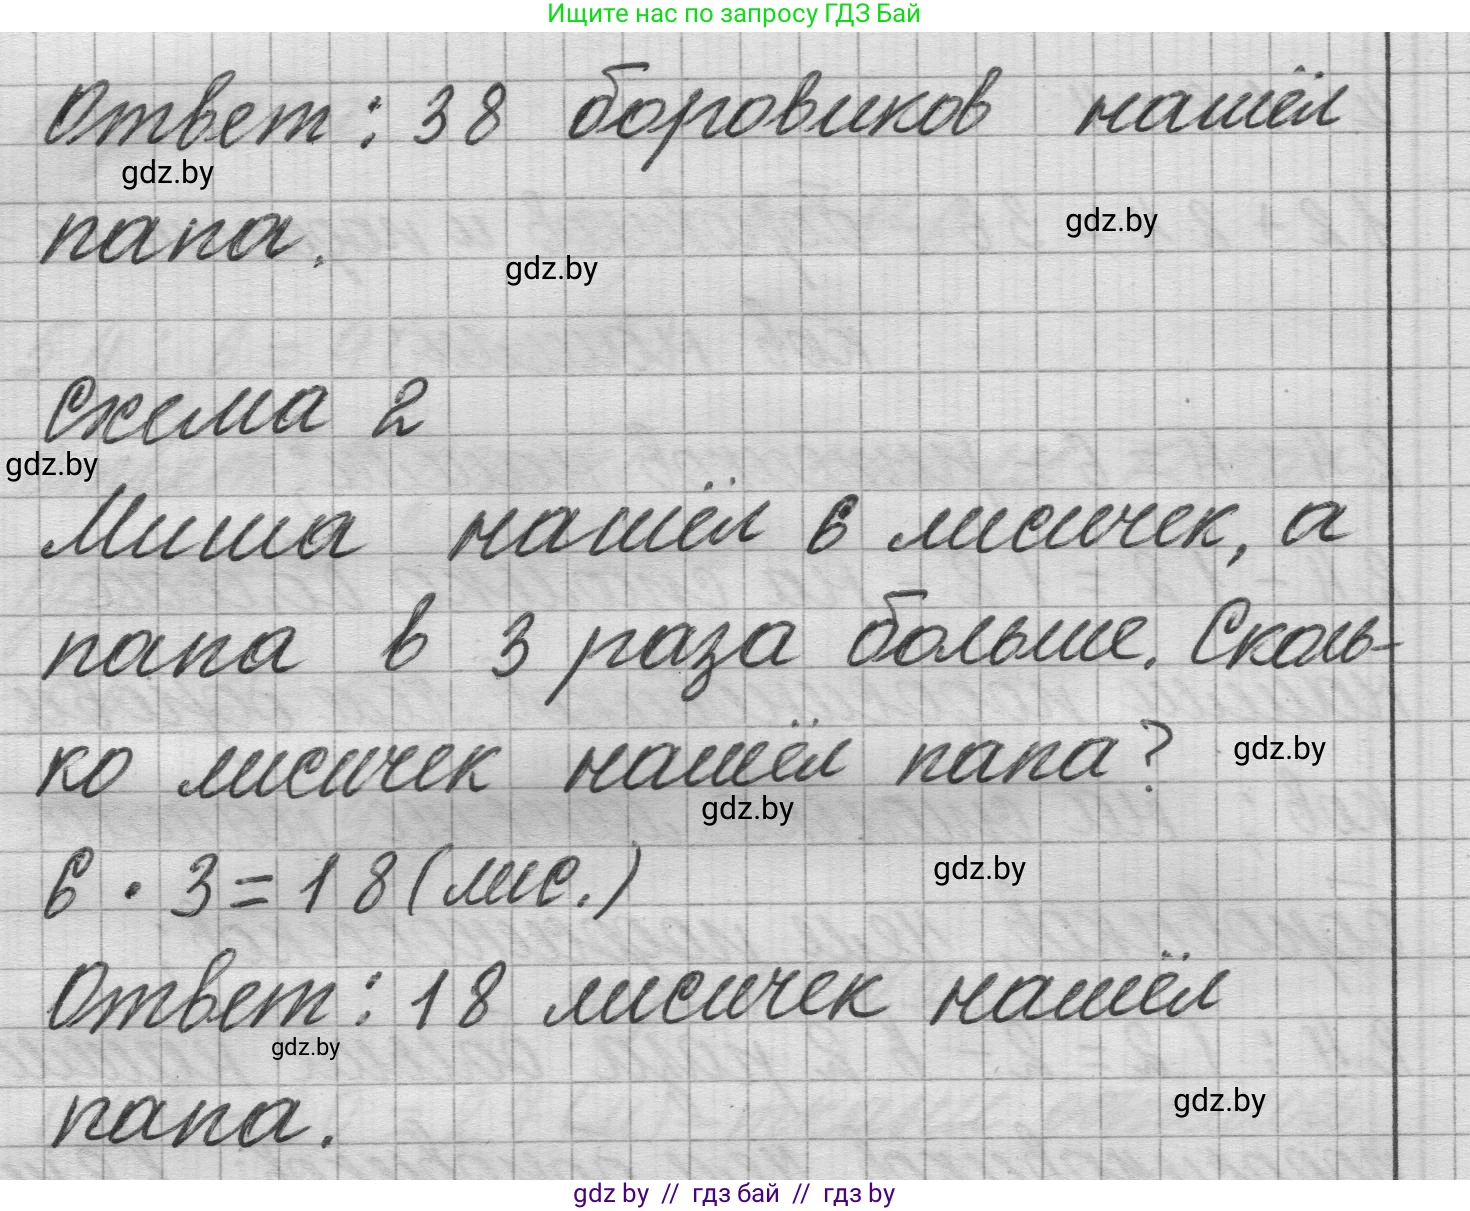 Ищите нас по запросу ГДЗ Бай
Ответ: 38 боровиков нашёл
gdz.by
папа.
gdz.by
gdz.by
Схема 2
gdz.by
Миша нашёл 6 лисичек, а
папа в 3 раза больше. Сколь-
ко лисичек нашёл папа?
gdz.by
gdz.by
6 · 3 = 18 (лис.)
gdz.by
Ответ: 18 лисичек нашёл
gdz.by
папа.
gdz.by
gdz by // гдз бай // гдз by